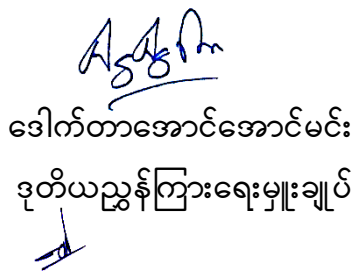 ဒေါက်တာအောင်အောင်မင်း
ဒုတိယညွှန်ကြားရေးမှူးချုပ်